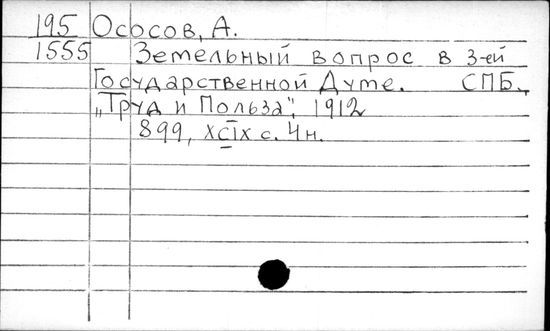 195 Ососов, А.
1555 Земельный вопрос в 3-ей
Государственной Думе. СПБ.,
„Труд и Польза“, 1912
899, XCIX с. Чн.